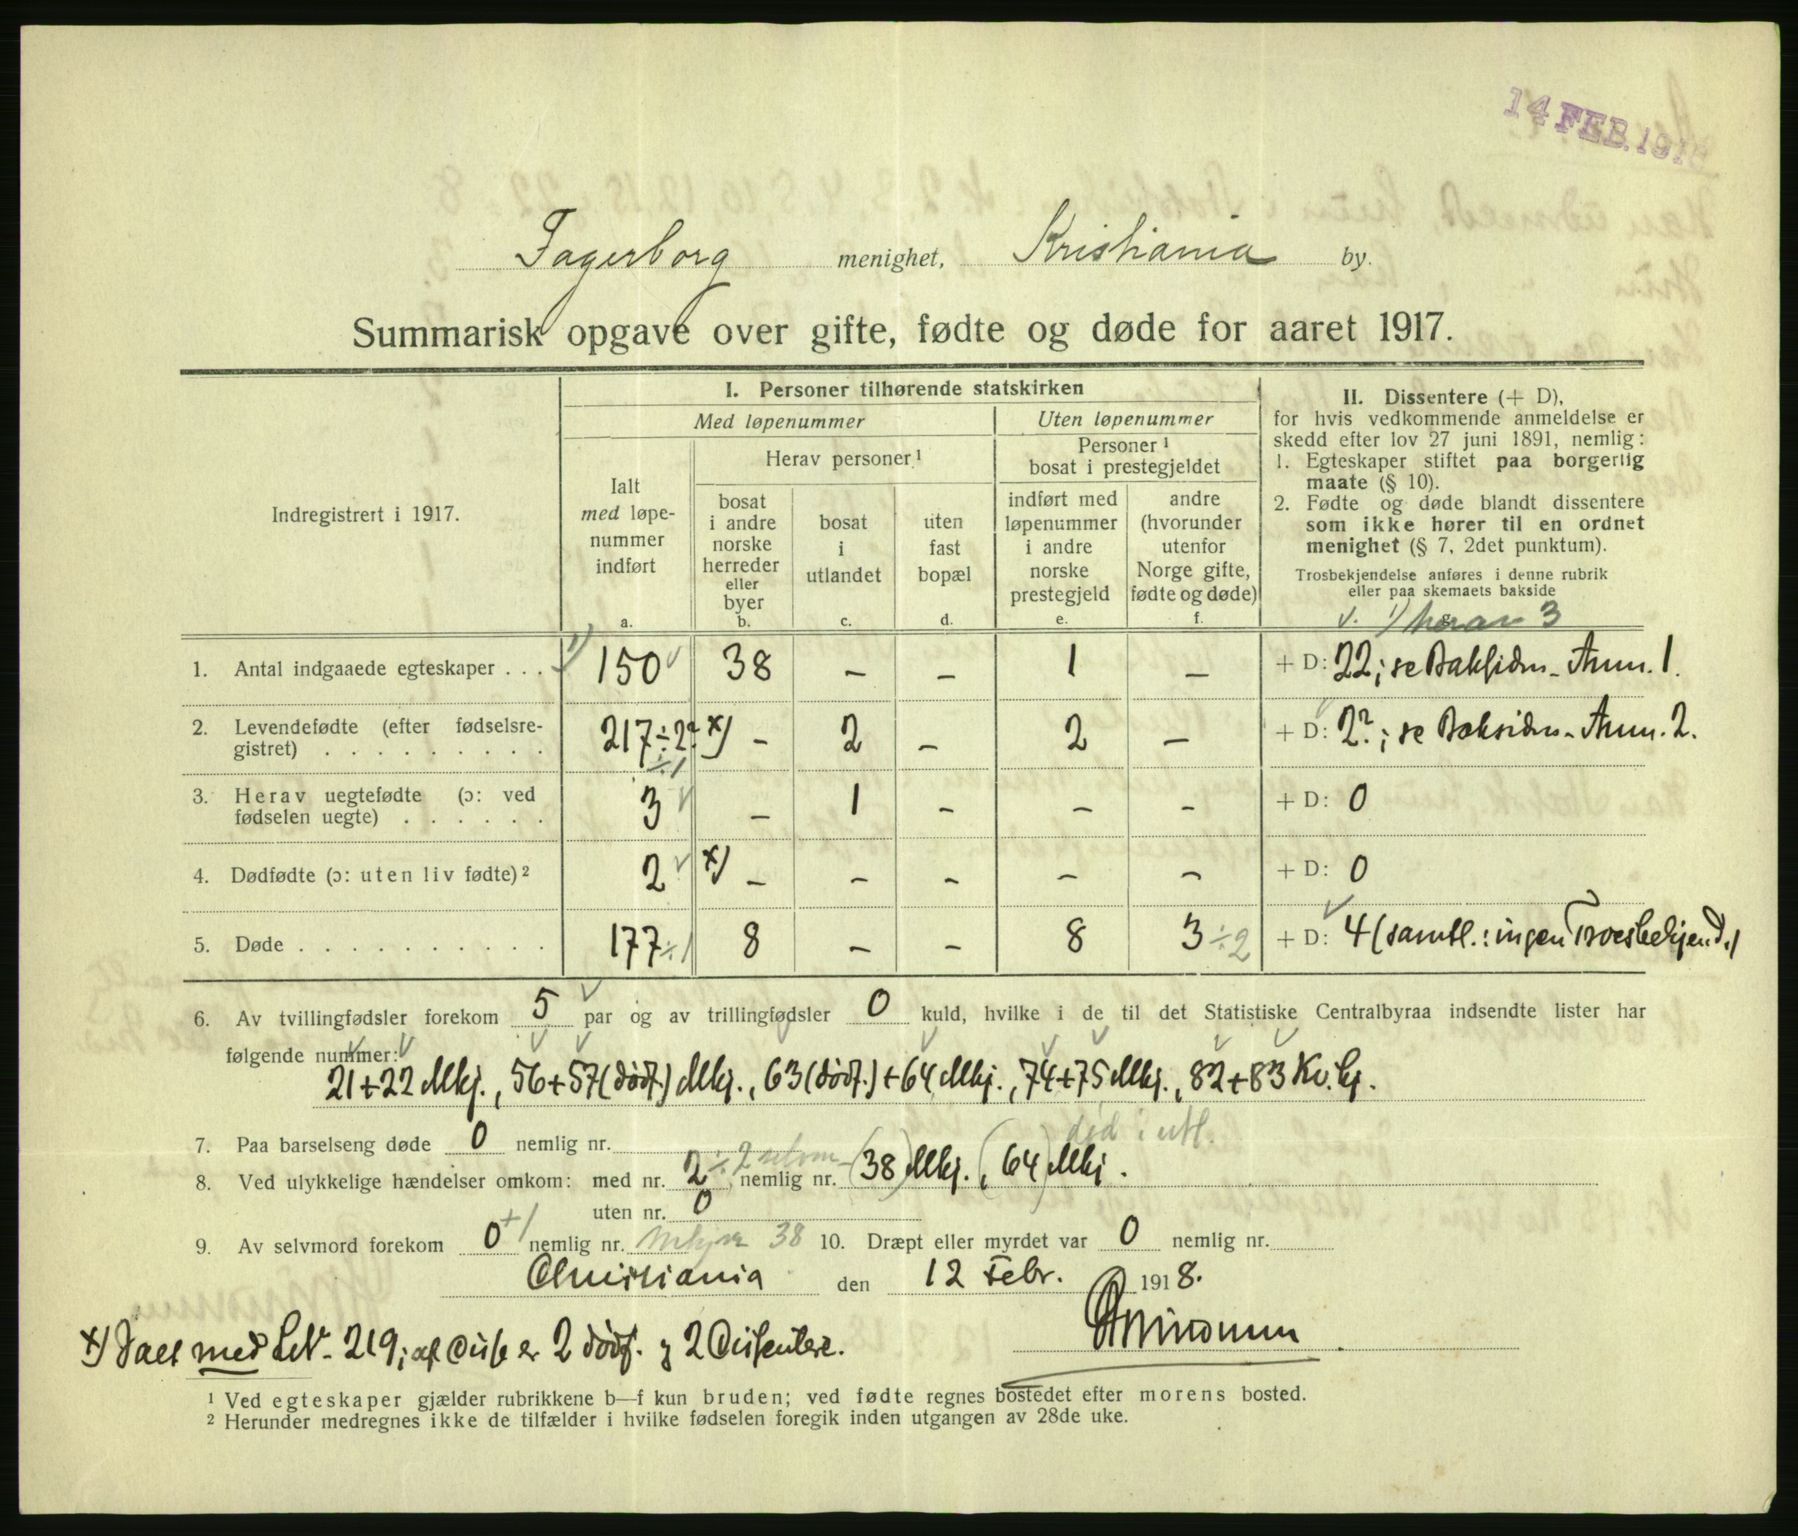 14 FEB. 1918
Fagerborg menighet, Kristiania by.
Summarisk opgave over gifte, fødte og døde for aaret 1917.
Indregistrert i 1917.
I. Personer tilhørende statskirken
Med løpenummer
Uten løpenummer
Ialt
med løpe-
nummer
indført
a.
Herav personer ¹
bosat
i andre
norske
herreder
eller
byer
b.
bosat
i
utlandet
c.
uten
fast
bopæl
d.
Personer ¹
bosat i prestegjeldet
indført med
løpenummer
i andre
norske
prestegjeld
e.
andre
(hvorunder
utenfor
Norge gifte,
fødte og døde)
f.
II. Dissentere (+ D),
for hvis vedkommende anmeldelse er
skedd efter lov 27 juni 1891, nemlig:
1. Egteskaper stiftet paa borgerlig
maate (§ 10).
2. Fødte og døde blandt dissentere
som ikke hører til en ordnet
menighet (§ 7, 2det punktum).
Trosbekjendelse anføres i denne rubrik
eller paa skemaets bakside
1) herav 3
1. Antal indgaaede egteskaper . . . 1) 150 38 – – 1 – + D: 22; se Baksiden Anm. 1.
2. Levendefødte (efter fødselsre-
gistret) . . . . . . . . . 217 ÷ 2? x) – 2 – 2 – + D: 2?; se Baksiden Anm. 2.
÷1
3. Herav uegtefødte (ɔ: ved
fødselen uegte) . . . . . . 3 – 1 – – – + D: 0
4. Dødfødte (ɔ: uten liv fødte) ² 2 x) – – – – – + D: 0
5. Døde . . . . . . . . . . 177 ÷1 8 – – 8 3 ÷2 + D: 4 (samtl.: ingen Troesbekjend.)
6. Av tvillingfødsler forekom 5 par og av trillingfødsler 0 kuld, hvilke i de til det Statistiske Centralbyraa indsendte lister har
følgende nummer:
21+22 Mkj., 56+57 (dødf.) Mkj., 63 (dødf.) + 64 Mkj., 74+75 Mkj., 82+83 Kv.kj.
7. Paa barselseng døde 0 nemlig nr.
død i utl.
8. Ved ulykkelige hændelser omkom: med nr. 2 ÷2 nemlig nr. (38) Mkj., (64) Mkj.
uten nr. 0
9. Av selvmord forekom 0 +1 nemlig nr. 38 10. Dræpt eller myrdet var 0 nemlig nr.
Christiania den 12 Febr. 1918.
x) Ialt med LNr. 219; af disse er 2 dødf. og 2 Dissentere.
¹ Ved egteskaper gjælder rubrikkene b–f kun bruden; ved fødte regnes bostedet efter morens bosted.
² Herunder medregnes ikke de tilfælder i hvilke fødselen foregik inden utgangen av 28de uke.